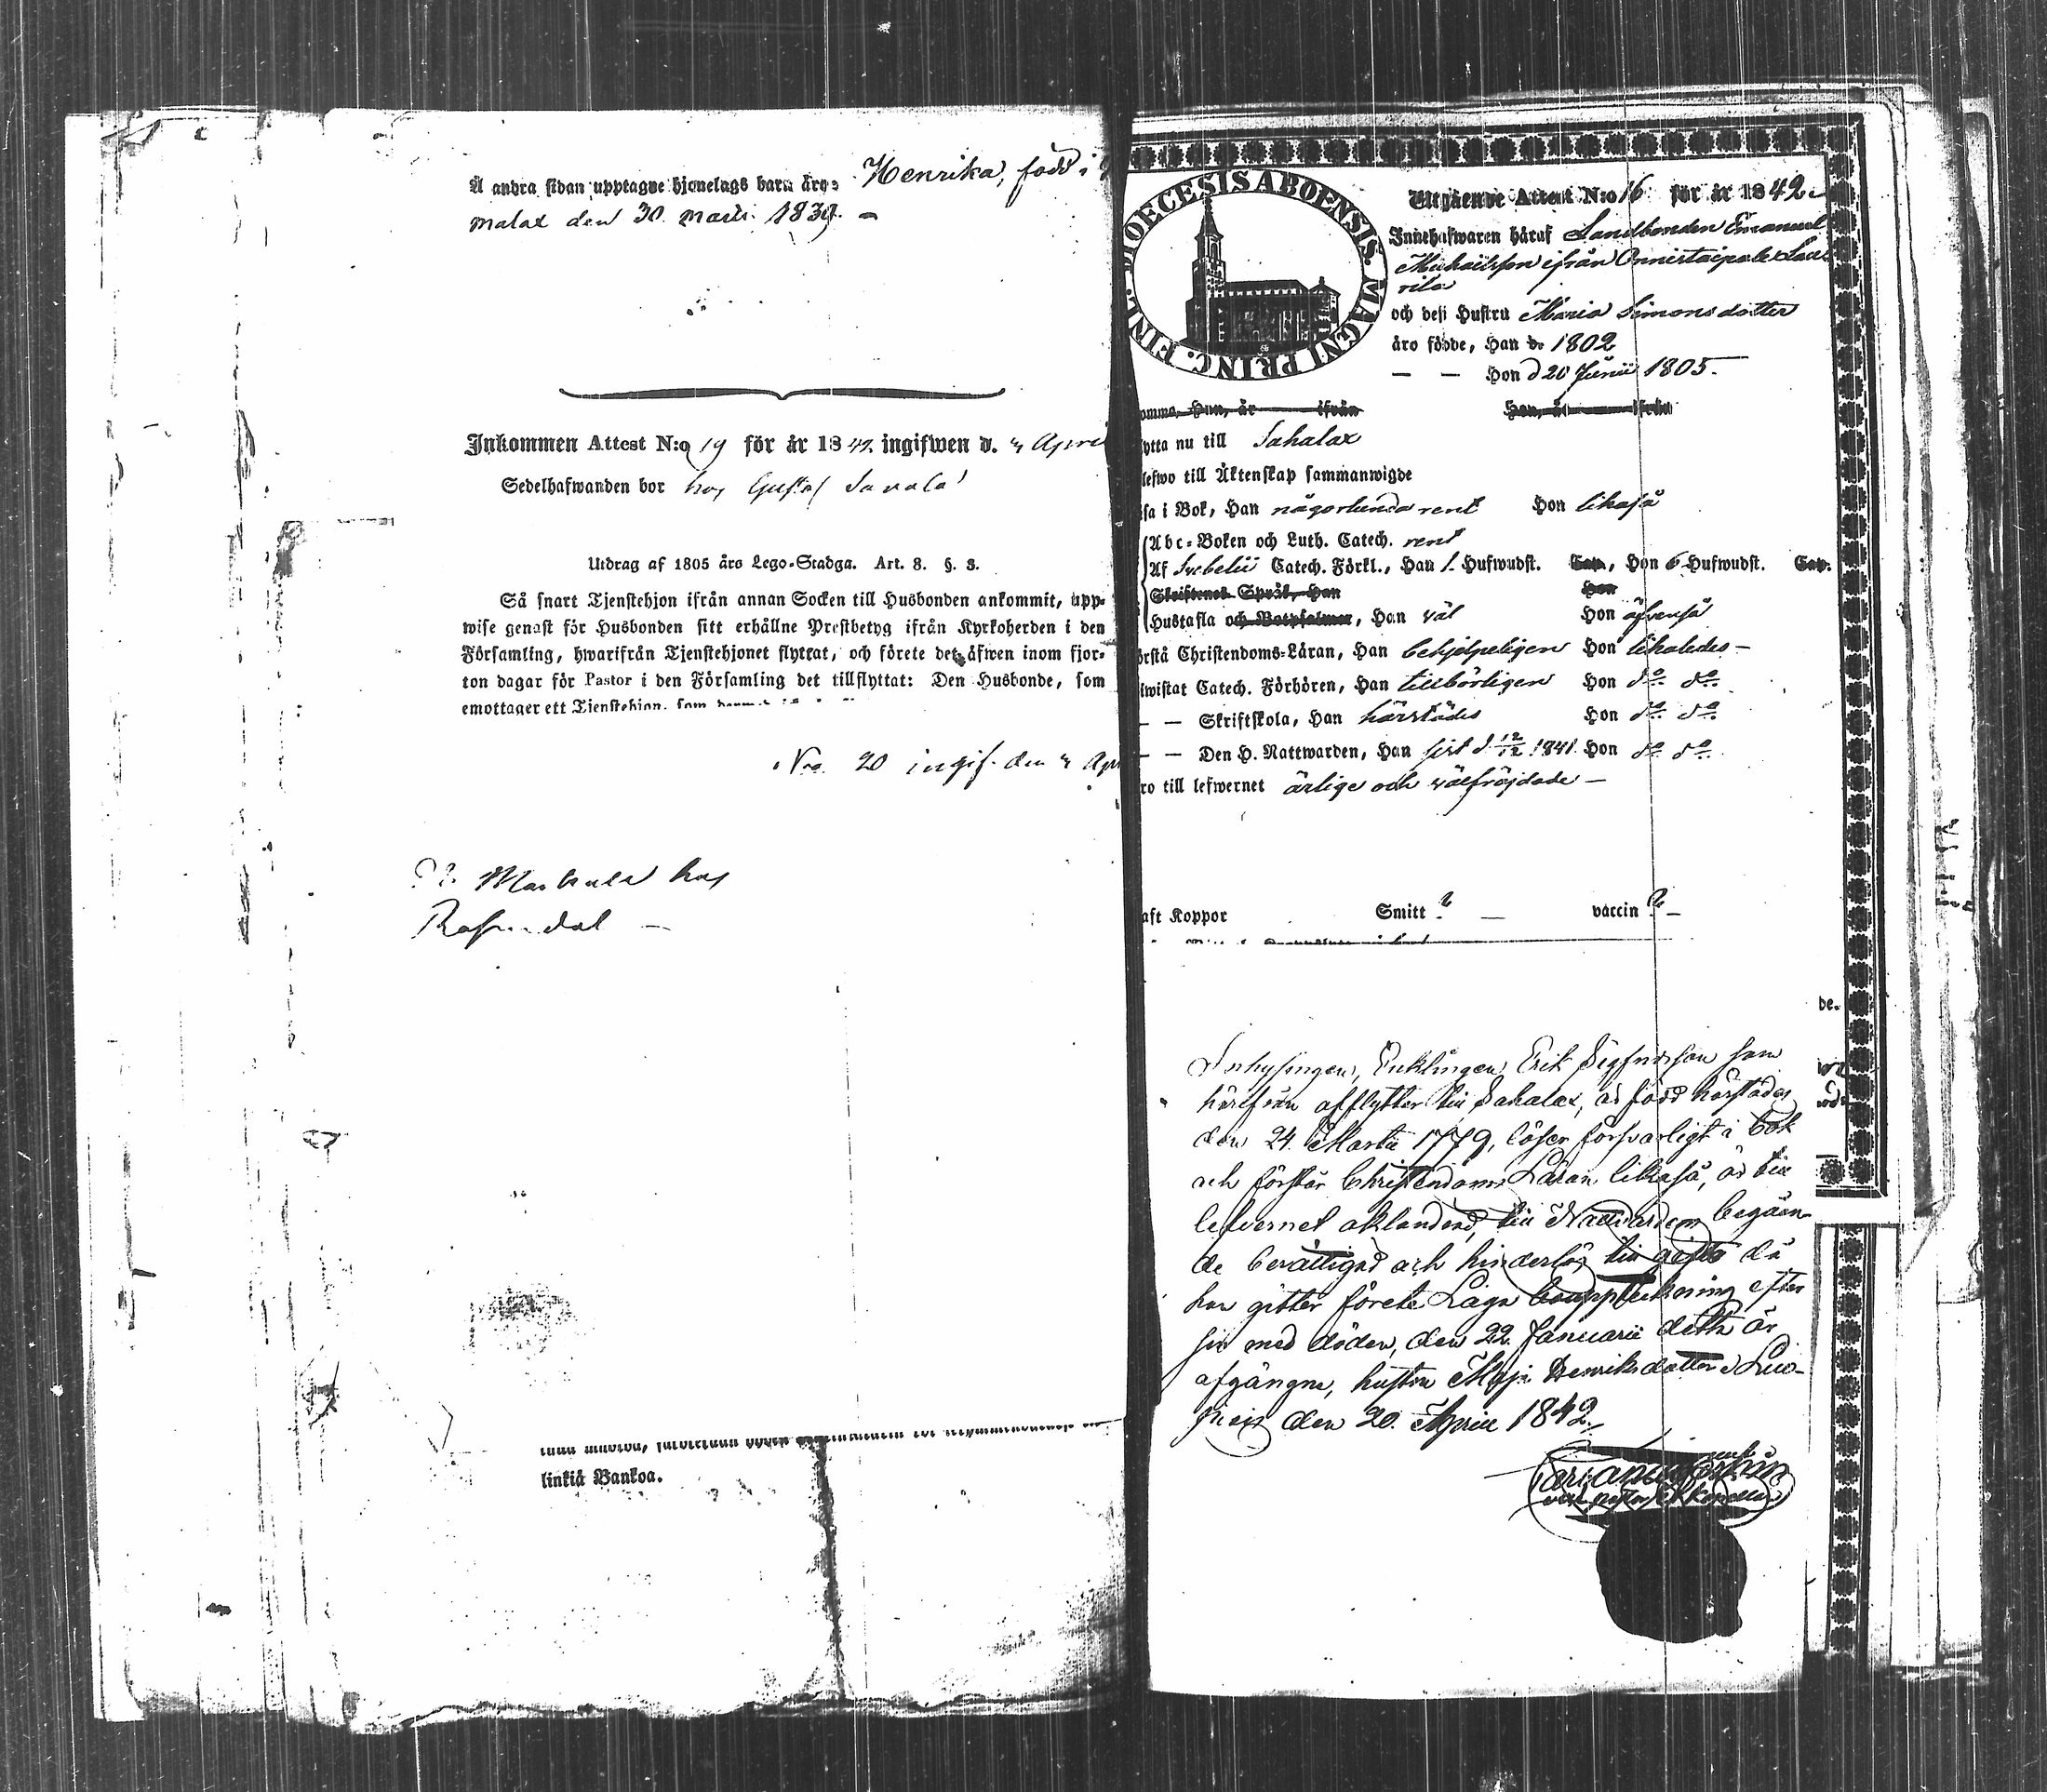 Å andra sidan upptagne hjonelags barn äro: Henrika, född i
Malax den 30. Martii 1839.
Inkommen Attest N:o 19 för år 1842. ingifwen d. 4 April
Sedelhafwanden bor hos Gustaf Savala
Utdrag af 1805 års Lego-Stadga. Art. 8. §. 3.
Så snart Tjenstehjon ifrån annan Socken till Husbonden ankommit, upp-
wise genast för Husbonden sitt erhållne Prestbetyg ifrån Kyrkoherden i den
Församling, hwarifrån Tjenstehjonet flyttat, och förete det äfwen inom fjor-
ton dagar för Pastor i den Församling det tillflyttat: Den Husbonde, som
emottager ett Tjenstehjon, som
No. 20 ingif. den 4 Apr
hos
linkiä Pankoa.
FINL. DIOECESIS ABOENSIS. MAGNI PRINC.
Utgående Attest N:o 16 för år 1842
Innehafwaren häraf Landbonden Emanuel
Michaelsson ifrån Onnistaipale Lau
rila
och dess Hustru Maria Simonsdotter
äro födde, Han d. 1802
— — Hon d 20 Junii 1805.
omma, Han, år ifrån Hon, år ifrån
lytta nu till Sahalax
lefwo till Äktenskap sammanwigde
sa i Bok, Han någorlunda rent Hon likaså
Abc-Boken och Luth. Catech. rent
Af Svebelii Catech. Förkl., Han 1. Hufwudst. Cap., Hon 6 Hufwudst. Cap.
Skriftenes Språk, Han Hon
Hustafla och Botpsalmer, Han väl Hon äfvenså
örstå Christendoms-Läran, Han behjelpeligen Hon likaledes —
iwistat Catech. Förhören, Han tillbörligen Hon do do
— — Skriftskola, Han härstädes Hon do do
— — Den H. Nattwarden, Han sist d. 12/12 1841. Hon do do
ro till lefwernet ärlige och välfräjdade —
aft Koppor Smitt ? — vaccin ? —
de.
Inhysingen, Enklingen Erik Sigfridsson som
härifrån afflyttar till Sahalax, är född härstädes
den 24. Martii 1779, läser försvarligt i bok
och förstår Christendoms Läran likaså, är till
lefvernet oklandrad, till Nattvardens begåen-
de berättigad och hinderlös till gifte då
han gitter förete Laga bouppteckning efter
sin med döden, den 22. Januarii detta år
afgångne, hustru Maja Henriksdotter. Luo-
piois den 20. April 1842.